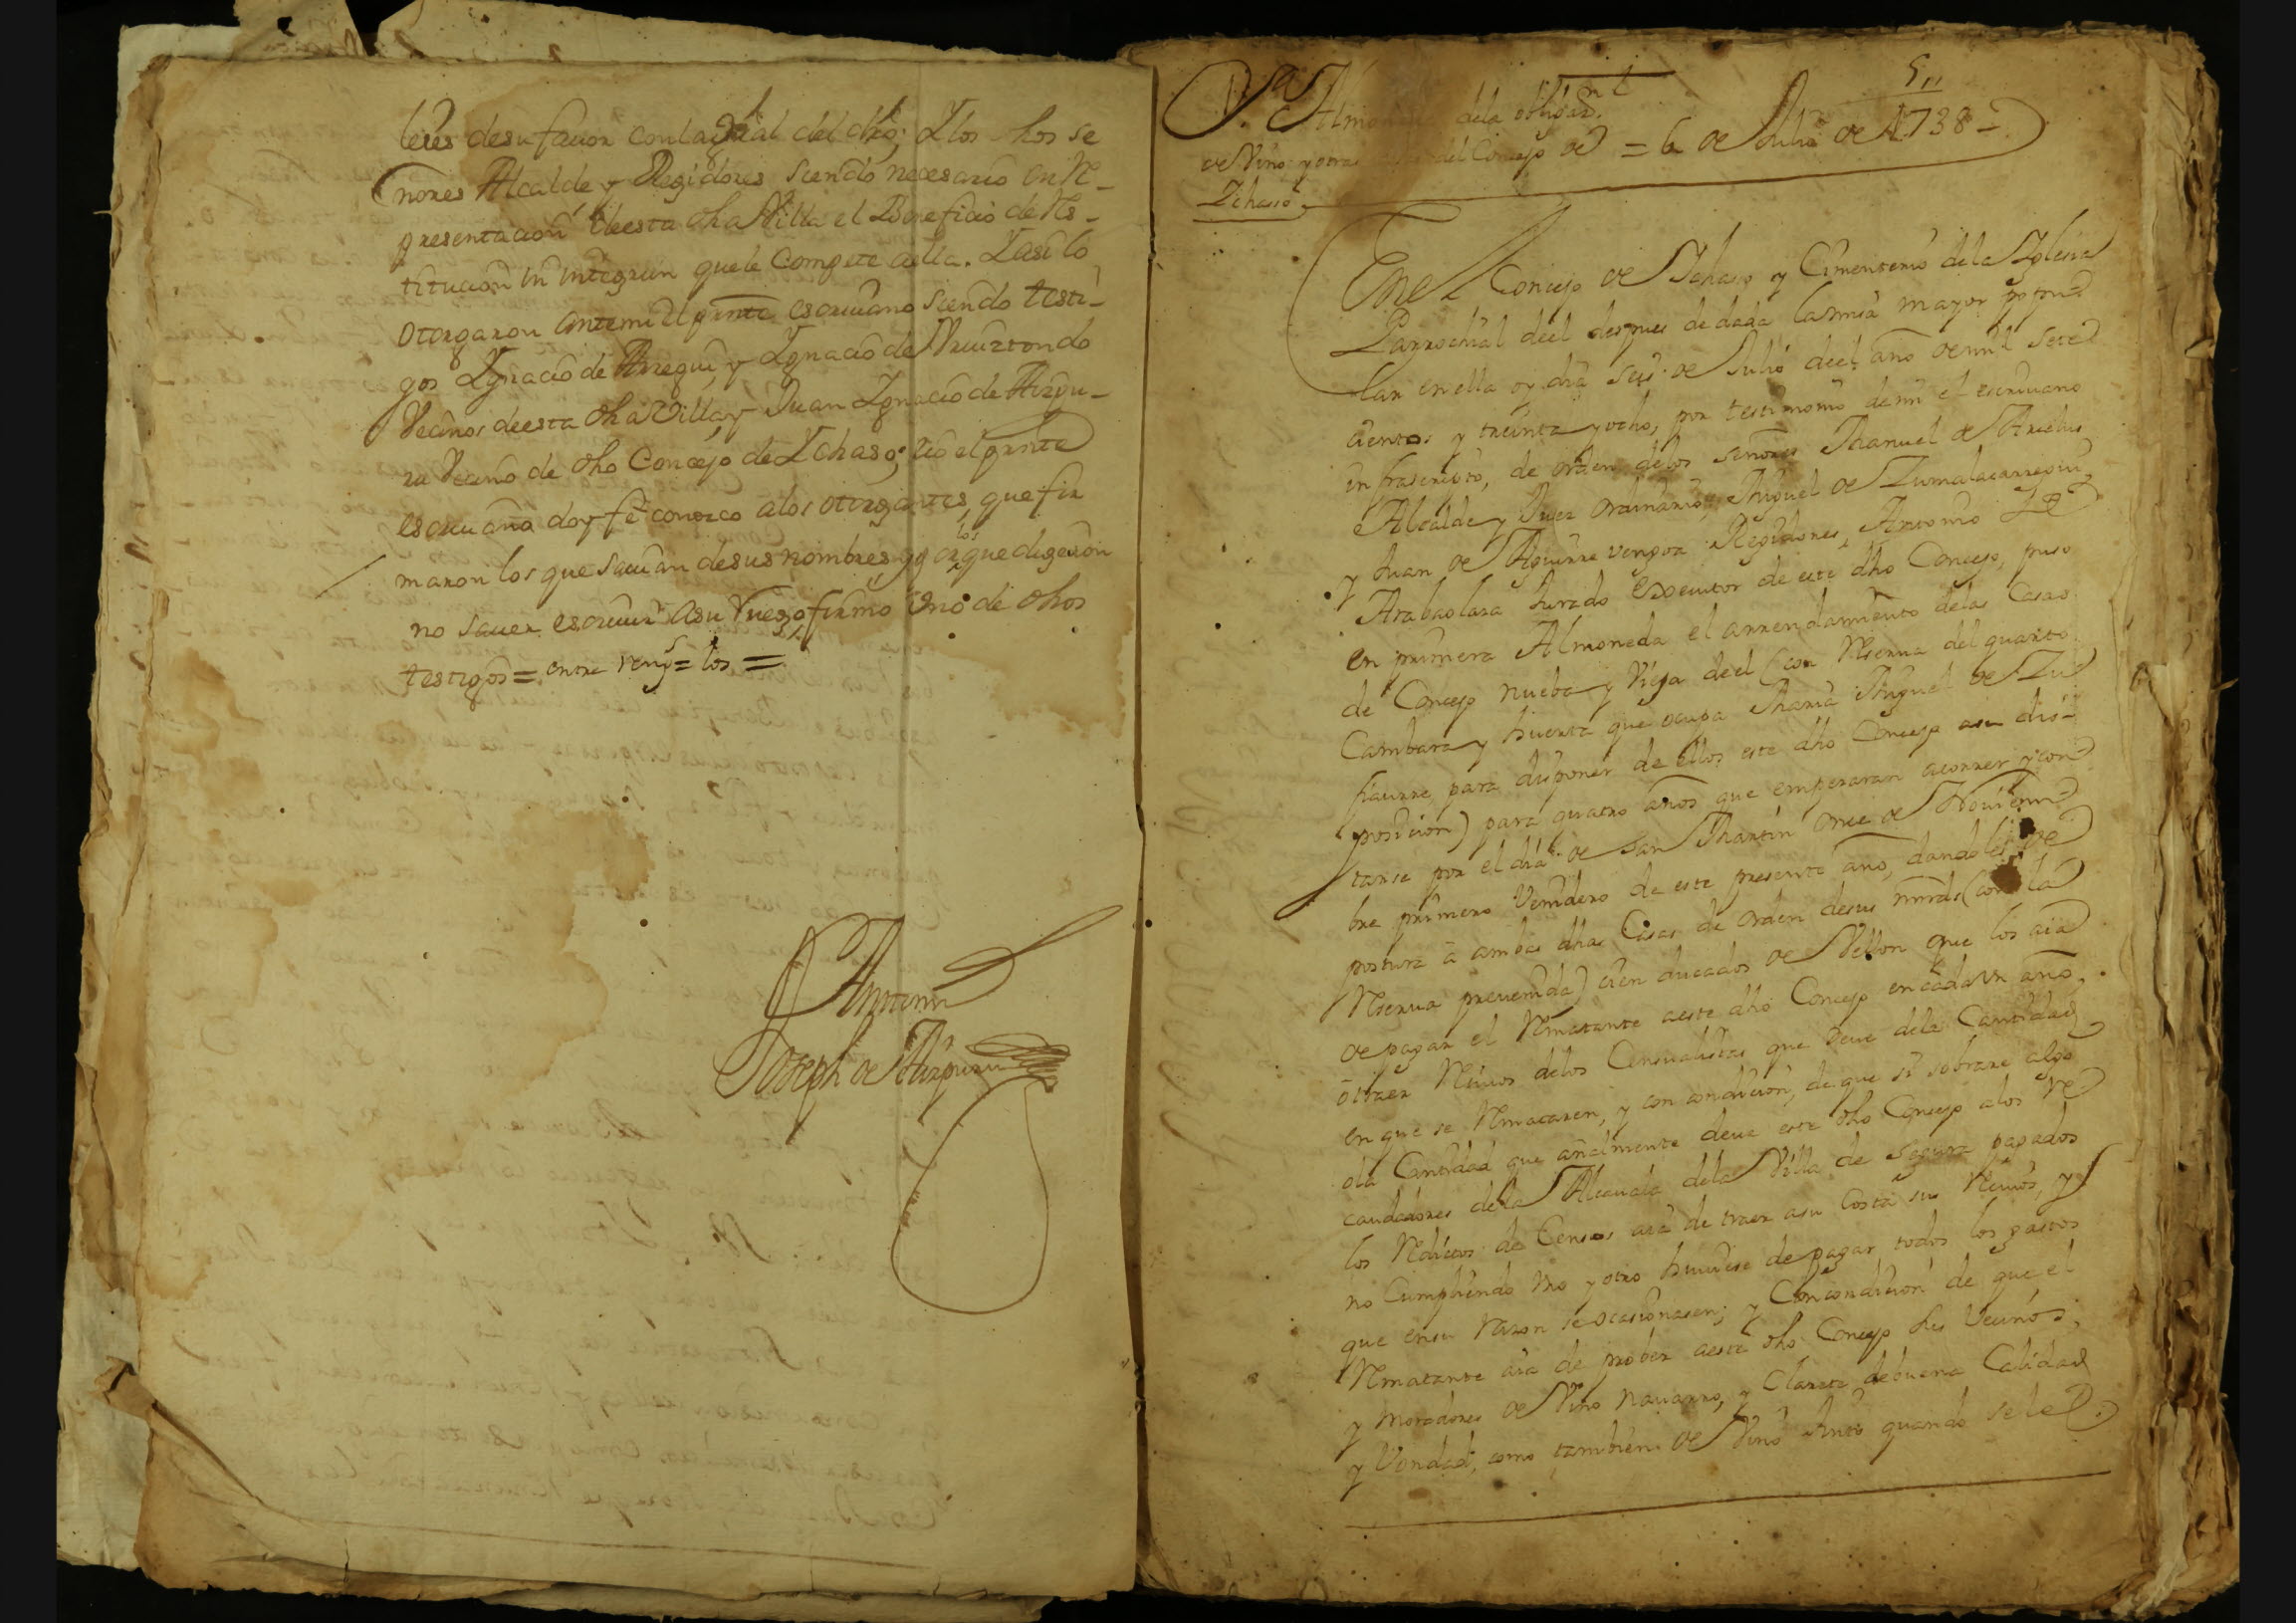 leies desu fauor con la gral del dro; Y los dhos se
ñores Alcalde y Regidores siendo necesario en Re-
presentacion deesta dha Villa el Beneficio de Res-
titucion in integrun quele Compete aella. Y asi lo
otorgaron ante mi el prnte escriuano siendo testi-
gos Ygnacio de Arregui, y Ygnacio de
Vecinos deesta dha Villa, y Juan Ygnacio de Aizpu-
ru Vecino de dho Concejo de Ychaso; e io el prnte
escriuano doy fe conozco alos otorgantes, que fir
maron los que sauian desus nombres, y por los que digeron
no sauer escriuir asu Ruego firmo Vno de dhos
testigos = entre rengs = los =
Antemi
Joseph de Aizpuru
5
1ª Almoneda dela obligaz.n
de Vino y otras del Concejo de = 6 de Julio de 1738 -
Ychaso
En el Concejo de Ychaso y Cimenterio dela Yglesia
Parrochial deel despues de dada la misa mayor popu
lar en ella oy dia seis de Julio deel año de mil sete
cientos y treinta y ocho, por testimonio de mi el escriuano
infrascripto, de orden delos señores Manuel de
Alcalde y Juez ordinario, Miguel de Zumalacarregui,
y Juan de Aguirre vengoa Regidores, Antonio
Arabaolaza Jurado Executor de este dho Concejo, puso
en primera Almoneda el arrendamiento delas Casas
de Concejo nueba y Vieja deel (con Reserua del quarto
Cambara y huerta que ocupa Maria Miguel de Zu
fiaurre, para disponer de ellos este dho Concejo asu dis-
posicion) para quatro años que empezaran acorrer y con
tarse por el dia de san Martin once de Nouiem
bre primero Venidero de este presente año, dandoles de
postura à ambas dhas Casas de orden desus mrds (con la
Reserua preuenida) cien ducados de Vellon que los aia
de pagar el Rematante aeste dho Concejo en cada vn año,
ò traer Reciuos delos Censualistas que deue dela Cantidad
en que se Remataren, y con condicion, de que si sobrare algo
ola Cantidad que añalmente deue este dho Concejo alos Re
caudadores dela Alcauala dela Villa de Segura pagados
los Reditos de Censos aia de traer asu Costa su Reciuo, y
no Cumpliendo Vno y otro huuiese de pagar todos los gastos
que ensu razon se ocasionasen; y Con condicion de que el
Rematante aia de prober aeste dho Concejo sus Vecinos,
y moradores de Vino nauarro, y Clarete de buena Calidad
y Vondad, como tambien de Vino tinto quando se le